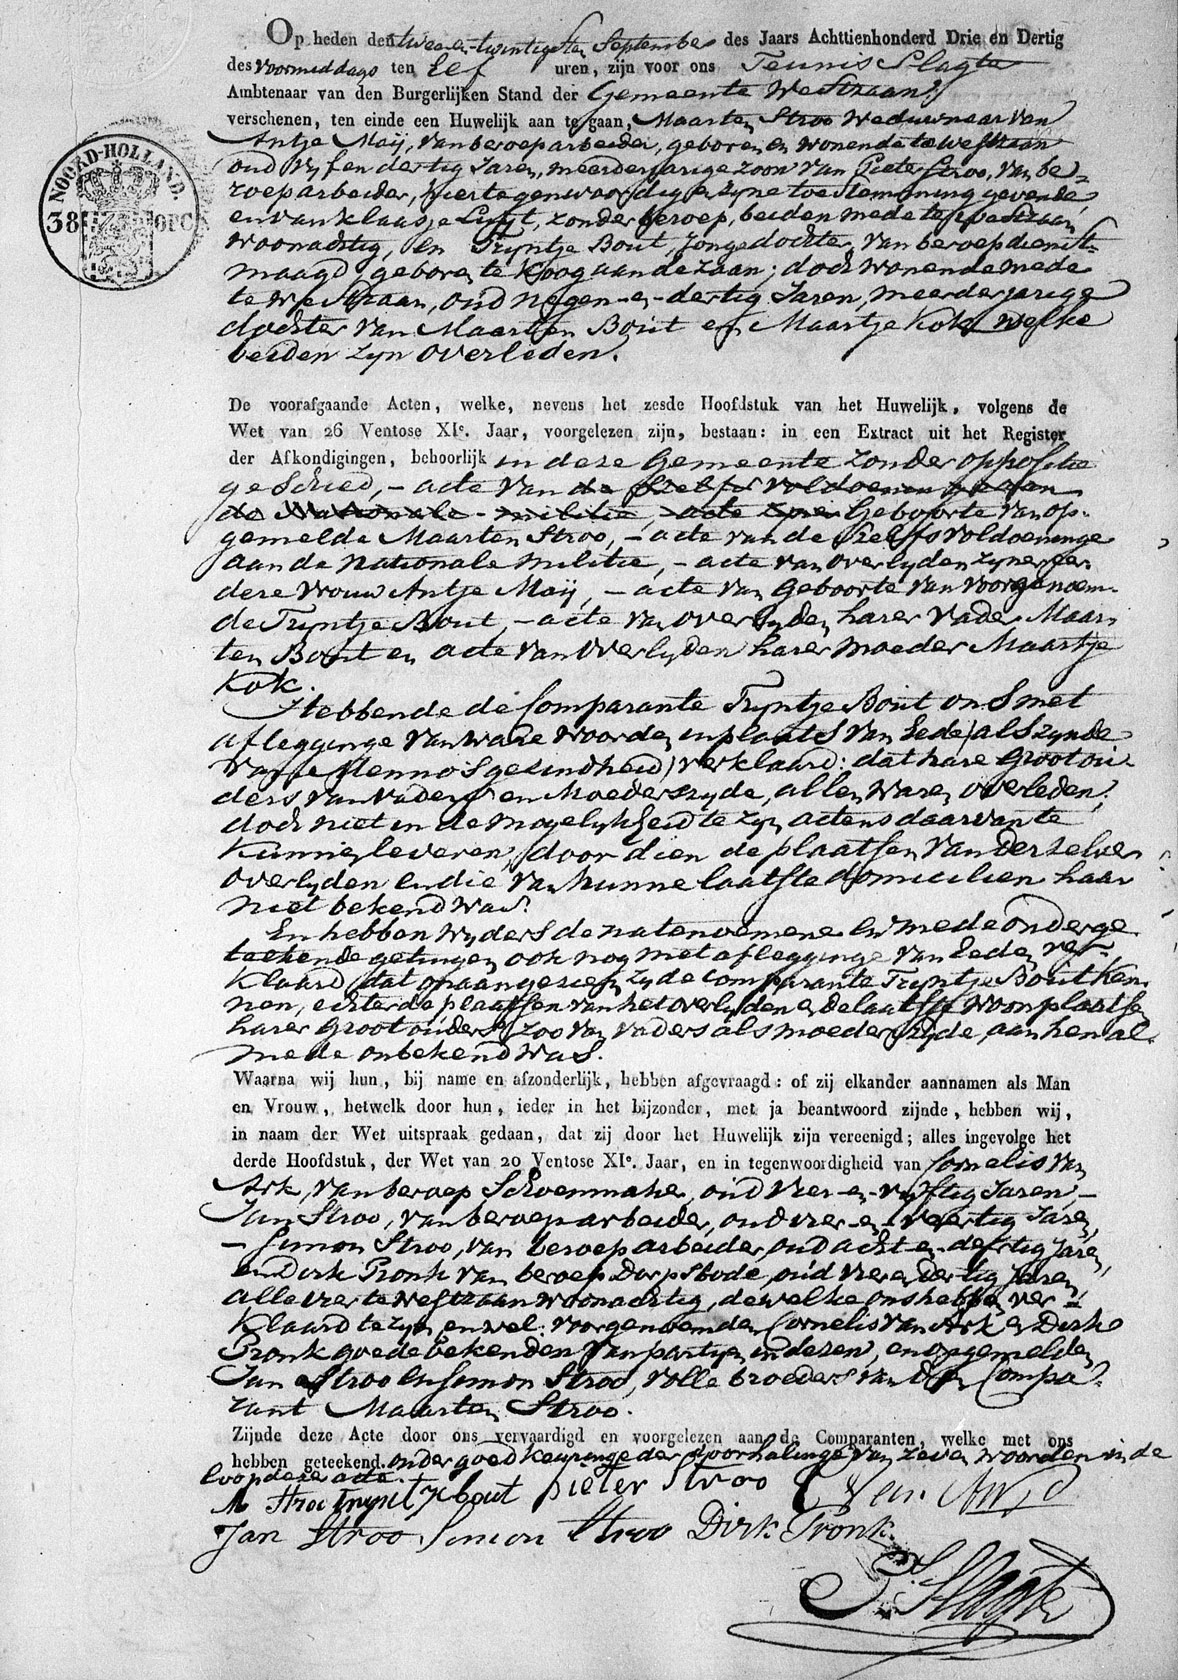 Op heden den twee en twintigsten September des Jaars Achttienhonderd Drie en Dertig
des voormiddags ten Elf uren, zijn voor ons Teunis Slagte
Ambtenaar van den Burgerlijken Stand der Gemeente Westzaan
verschenen, ten einde een Huwelijk aan te gaan, Maarten Stroo Weduwnaar van
Antje Maij, van beroep arbeider, geboren en wonende te Westzaan
oud vyf en dertig Jaren, meerderjarige zoon van Pieter Stroo, van be-
roep arbeider, hier tegenwoordig en zyne toestemming gevende
en van Klaasje Luijt, zonder beroep, beiden mede te Westzaan
woonachtig, en Tryntje Bout, Jongedochter, van beroep dienst-
maagd, geboren te Koog aan de Zaan; doch wonende mede
te Westzaan, oud negen-en-dertig Jaren, meerderjarige
dochter van Maarten Bout en Maartje Kok welke
beiden zyn overleden.
De voorafgaande Acten, welke, nevens het zesde Hoofdstuk van het Huwelijk, volgens de
Wet van 26 Ventose XIe. Jaar, voorgelezen zijn, bestaan: in een Extract uit het Register
der Afkondigingen, behoorlijk in deze Gemeente zonder oppositie
geschied, - acte van de Zelfs voldoeninge aan
de Nationale militie, acte zyner Geboorte van op-
gemelde Maarten Stroo, - acte van deszelfs voldoeninge
aan de nationale militie, - acte van overlyden zyner eer
dere vrouw Antje Maij, - acte van Geboorte van voorgenoem-
de Tryntje Bout, - acte van overlyden harer vader Maar-
ten Bout en acte van overlyden harer moeder Maartje
Kok.
Hebbende de Comparante Tryntje Bout ons met
aflegginge van ware woorden in plaats van Eede (als zynde
van de Mennos gezindheid) verklaard: dat hare Grootou-
ders van vaders en Moederszyde, allen waren overleden;
doch niet in de mogelykheid te zyn actens daarvan te
kunnen leveren, door dien de plaatsen van derzelver
overlyden en die van hunne laatste domicilien haar
niet bekend was.
En hebben wyders de natenoemene en mede onderge
teekende getuigen ook nog met aflegginge van Eeden ver-
klaard, dat ofaangezien zy de comparante Tryntje Bout ken-
nen, echter de plaatsen van het overlyden en de laatste woonplaatsen
harer grootouders zoo van vaders als moeders zyde, aan hen al-
mede onbekend was.
Waarna wij hun, bij name en afzonderlijk, hebben afgevraagd: of zij elkander aannamen als Man
en Vrouw, hetwelk door hun, ieder in het bijzonder, met ja beantwoord zijnde, hebben wij,
in naam der Wet uitspraak gedaan, dat zij door het Huwelijk zijn vereenigd; alles ingevolge het
derde Hoofdstuk, der Wet van 20 Ventose XIe. Jaar, en in tegenwoordigheid van Cornelis van
Ark, van beroep Schoenmaker, oud vier-en-vyftig Jaren, -
Jan Stroo, van beroep arbeider, oud vier-en-veertig Jaren,
- Simon Stroo, van beroep arbeider, oud acht-en-dertig Jaren,
en Dirk Pronk van beroep Dorpsbode, oud vier en dertig Jaren
alle vier te Westzaan woonachtig, dewelke ons hebben ver-
klaard te zyn, en wel: voorgenoemden Cornelis van Ark en Dirk
Pronk goede bekenden van partyen in dezen, en opgemelden
Jan Stroo en Simon Stroo, volle broeders van den Compa-
rant Maarten Stroo.
Zijnde deze Acte door ons vervaardigd en voorgelezen aan de Comparanten, welke met ons
hebben geteekend. onder goedkeuringe der doorhalinge van zeven woorden in de
loop dezer acte.
M Stroo Tryntje bout pieter Stroo C Van Ark
Jan Stroo Simon Stroo Dirk Pronk.
T. Slagte
NOORD-HOLLAND.
38